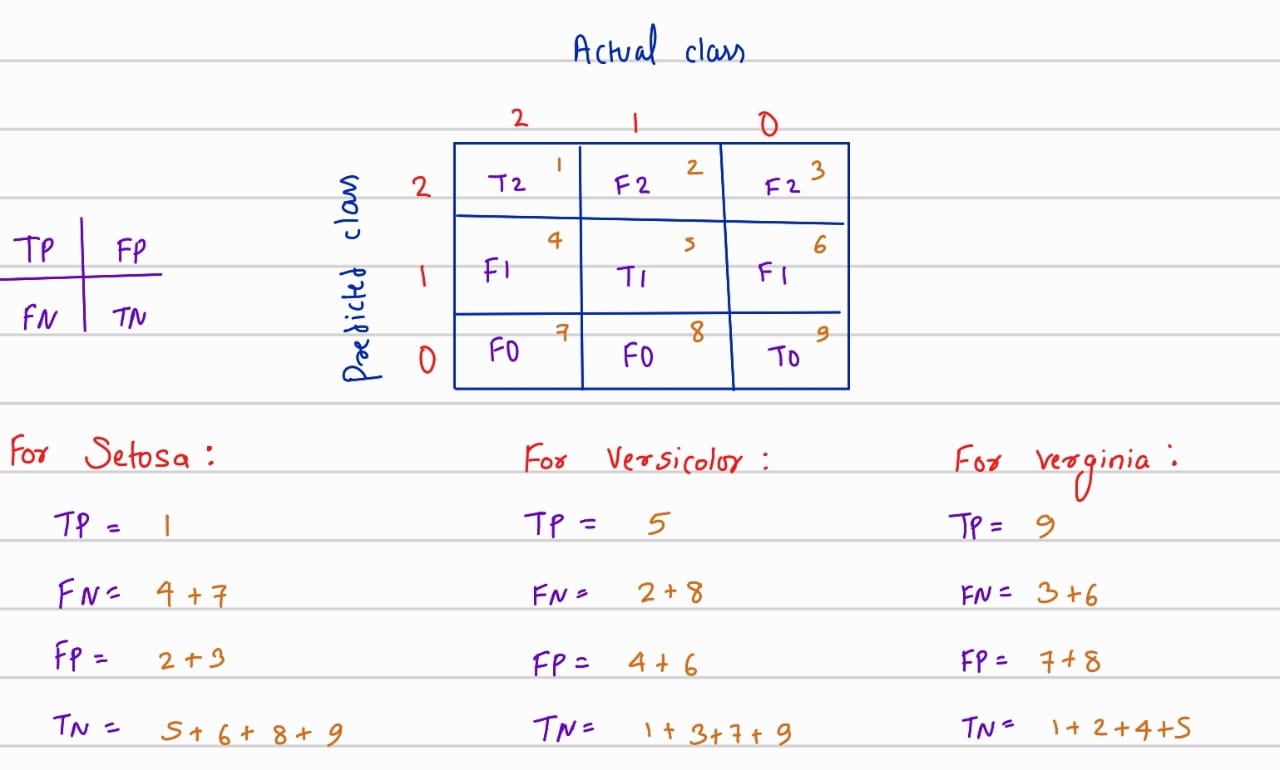 Actual class
2 1 0
Predicted class
2 T2 1 F2 2 F2 3
1 F1 4 T1 5 F1 6
0 F0 7 F0 8 T0 9
TP FP
FN TN
For Setosa :
TP = 1
FN = 4 + 7
FP = 2 + 3
TN = 5 + 6 + 8 + 9
For Versicolor :
TP = 5
FN = 2 + 8
FP = 4 + 6
TN = 1 + 3 + 7 + 9
For verginia :
TP = 9
FN = 3 + 6
FP = 7 + 8
TN = 1 + 2 + 4 + 5